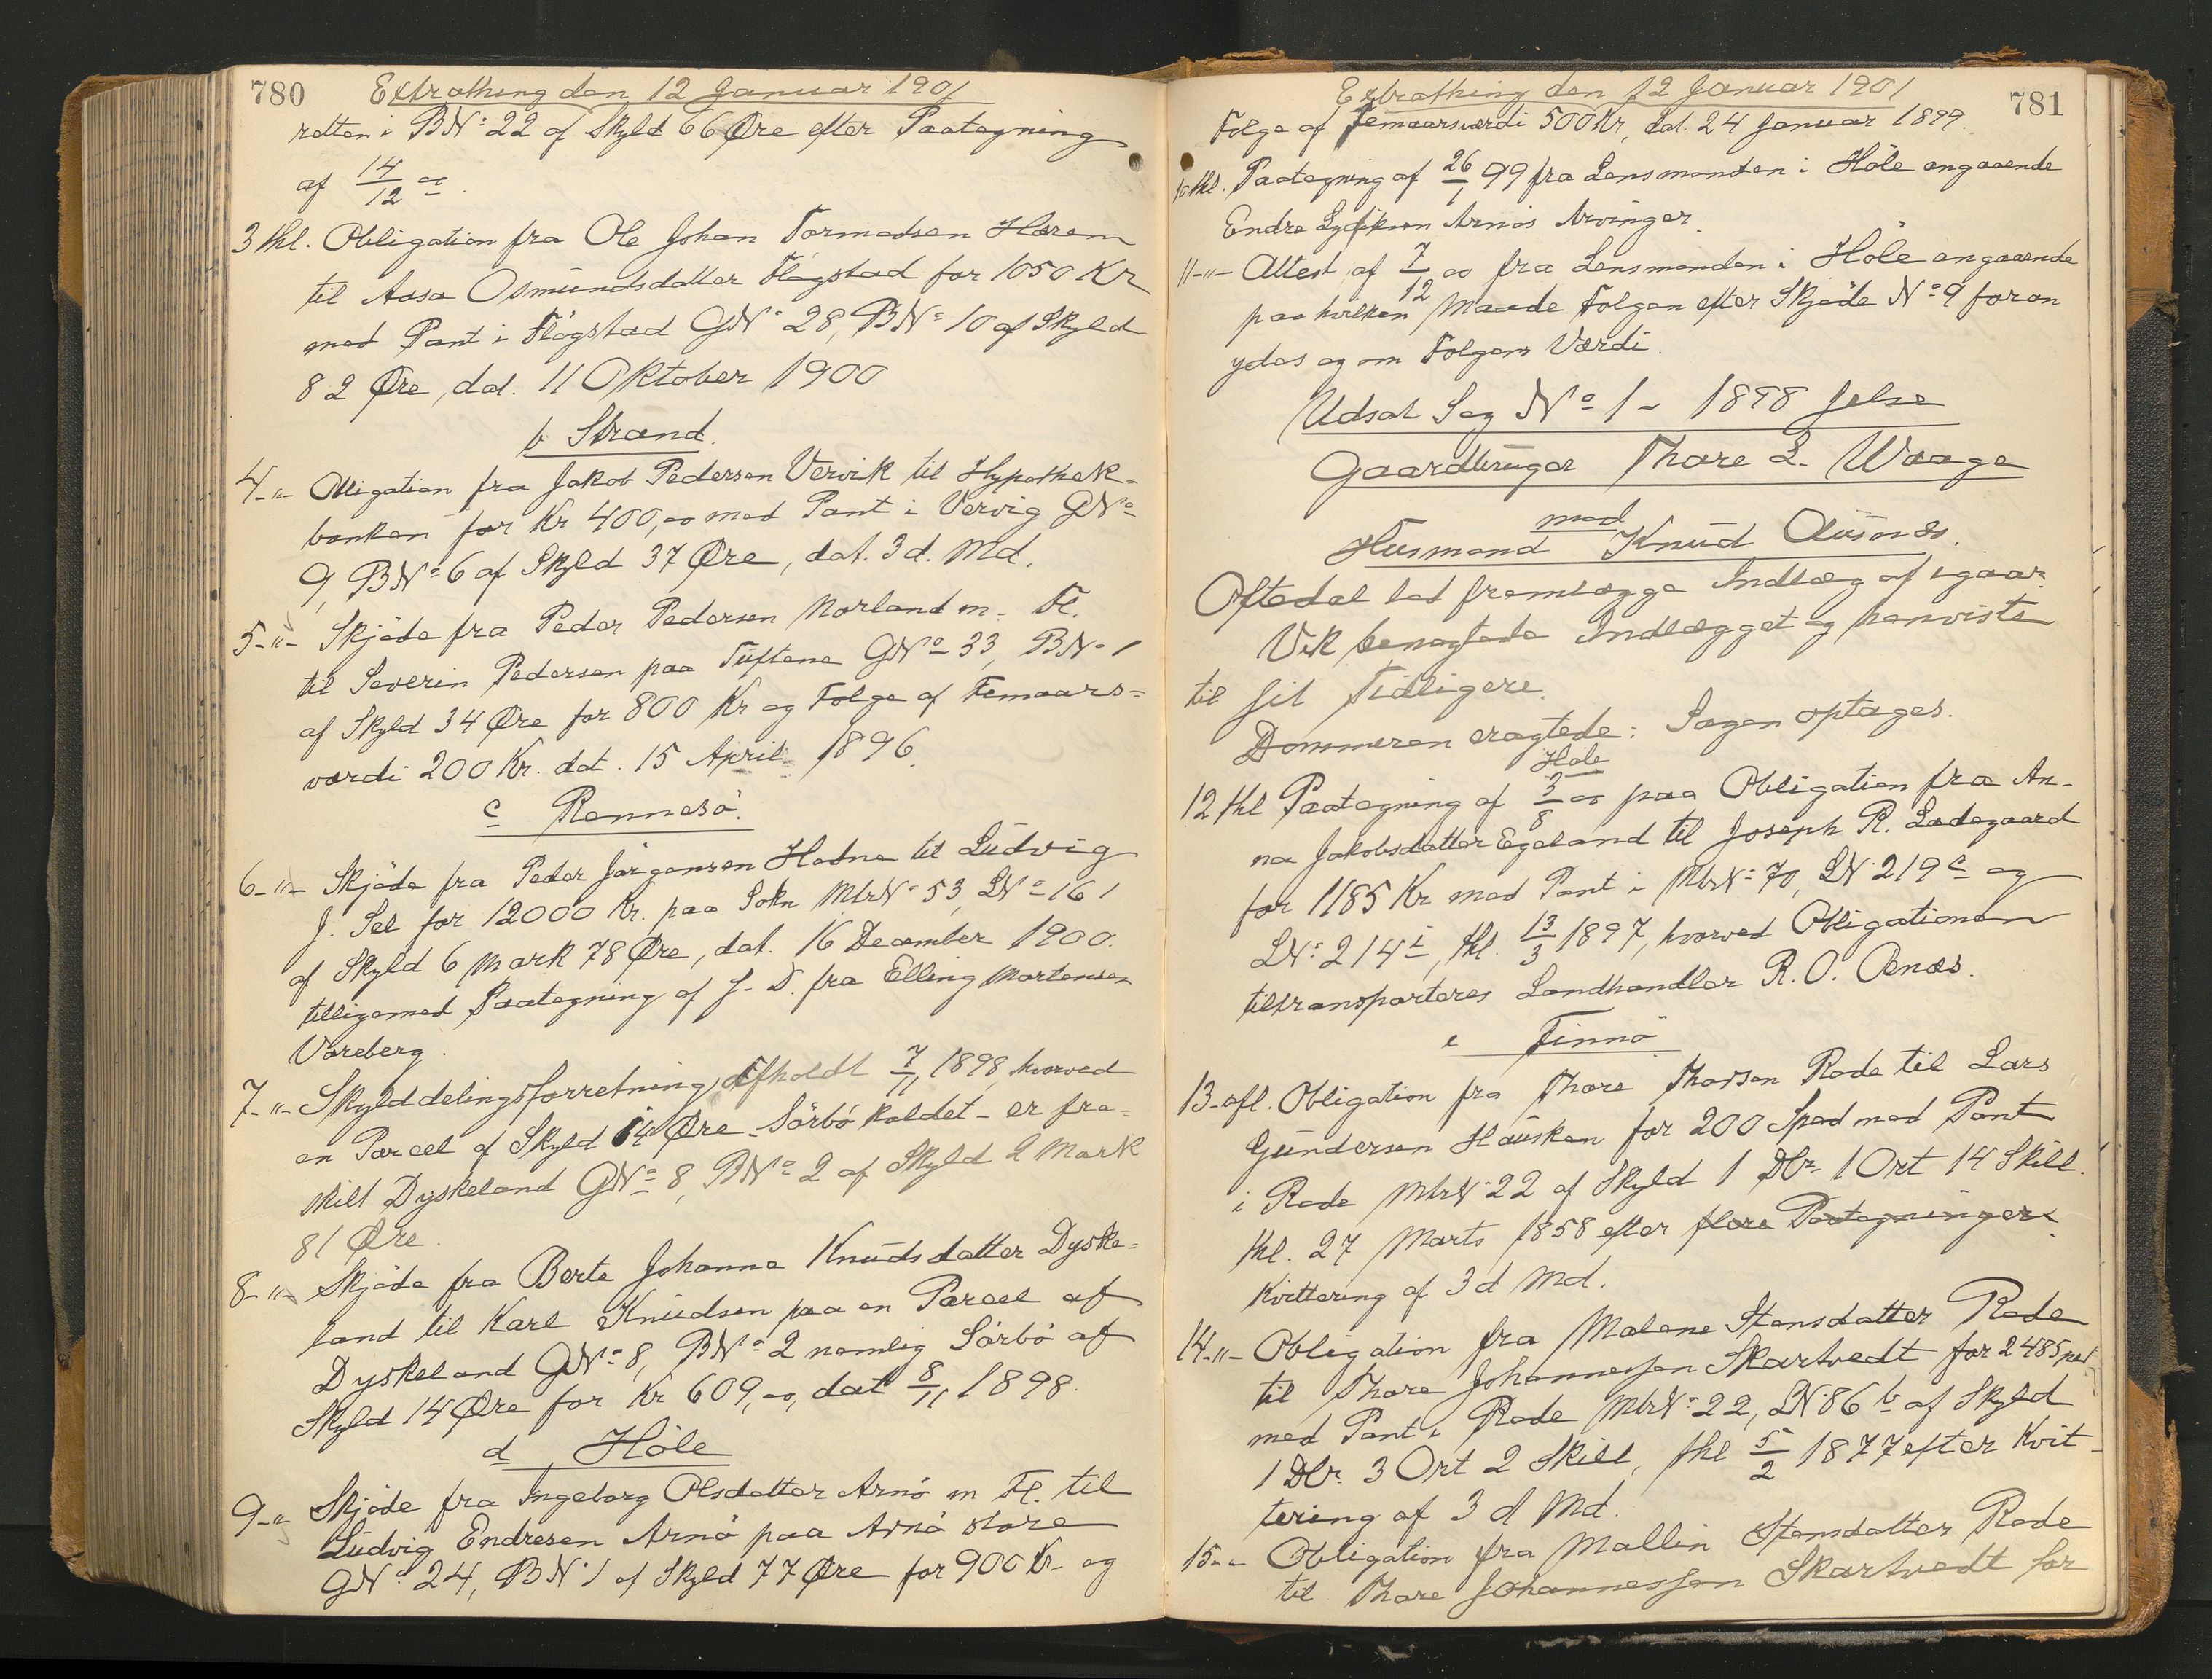 780 Extrathing den 12 Januar 1901
retten i BN: 22 af Skyld 66 Øre efter Paategning
af 14/12 00.
3 thl. Obligation fra Ole Johan Tormodsen Harem
til Aasa Osmundsdatter Flögstad for 1050 Kr
med Pant i Flögstad GN: 28, BN: 10 af Skyld
82 Øre, dat. 11 Oktober 1900
b Strand.
4-"- Obligation fra Jakob Pedersen Vervik til Hypothek-
banken for Kr 400,00 med Pant i Vervig GNo
9, BNo 6 af Skyld 37 Øre, dat. 3 d. Md.
5-"- Skjöde fra Peder Pedersen Norland m. Fl.
til Severin Pedersen paa Tuftene GNo 33, BN: 1
af Skyld 34 Øre for 800 Kr og Folge af Femaars=
værdi 200 Kr. dat. 15 April 1896.
c Rennesö.
6-"- Skjöde fra Peder Jörgensen Hodne til Ludvig
J. Sel for 12000 Kr. paa Sokn MtrN: 53, LNo 161
af Skyld 6 Mark 78 Øre, dat. 16 December 1900.
tilligemed Paategning af s. D. fra Elling Mortensen
Voreberg.
7-"- Skylddelingsforretning, afholdt 7/11 1898, hvorved
en Parcel af Skyld 14 Øre - Sörbö kaldet - er fra-
skilt Dyskeland GNo 8, BNo 2 af Skyld 2 Mark
81 Øre.
8-"- Skjöde fra Berte Johanna Knudsdatter Dyske=
land til Karl Knudsen paa en Parcel af
Dyskeland GNo 8, BNo 2 nemlig Sörbö af
Skyld 14 Øre for Kr 609,00, dat 8/11 1898.
d Höle
9-" Skjöde fra Ingeborg Olsdatter Arnö m Fl. til
Ludvig Endresen Arnö paa Arnö store
GNo 24, BN: 1 af Skyld 77 Øre for 900 Kr. og
Extrathing den 12 Januar 1901 781
Folge af Femaarsværdi 500 Kr, dat. 24 Januar 1899.
10 thl. Paategning af 26/1 99 fra Lensmanden i Höle angaaende
Endre Arnös Arvinger.
11-"- Attest af 7/12 00 fra Lensmanden i Höle angaaende
paa hvilken Maade Folgen efter Skjöde No 9 foran
ydes og om Folgens Værdi.
Udsat Sag No 1 - 1898 Jelse
Gaardbruger Thore L. Waage
mod
Husmand Knud Ausnæs.
Oftedal lod fremlægge Indlæg af igaar.
Vik benægtede Indlægget og henviste
til sit Tidligere.
Dommeren eragtede: Sagen optages.
Höle
12 thl Paategning af 3/8 00 paa Obligation fra An-
na Jakobsdatter Egeland til Joseph R. Ladegaard
for 1185 Kr med Pant i MtrN: 70, LN: 219 c og
LN: 214 i, thl. 13/3 1897, hvorved Obligationen
tiltransporteres Landhandler R. O.Ænæs.
e Finnö
13-afl. Obligation fra Thore Thorsen Rode til Lars
Gundersen Hausken for 200 Spd med Pant
i Rode MtrN: 22 af Skyld 1 Dlr. 1 Ort 14 Skill.
thl. 27 Marts 1858 efter flere Paategninger.
Kvittering af 3 d Md.
14-"- Obligation fra Malene Stensdatter Rode
til Thore Johannessen Skartvedt for 248 Spd
med Pant i Rode MtrN: 22, LN: 86 b af Skyld
1 Dlr. 3 Ort 2 Skill, thl 5/2 1877 efter Kvit-
tering af 3 d Md.
15-"- Obligation fra Mallin Stensdatter Rode
til Thore Johannessen Skartvedt for